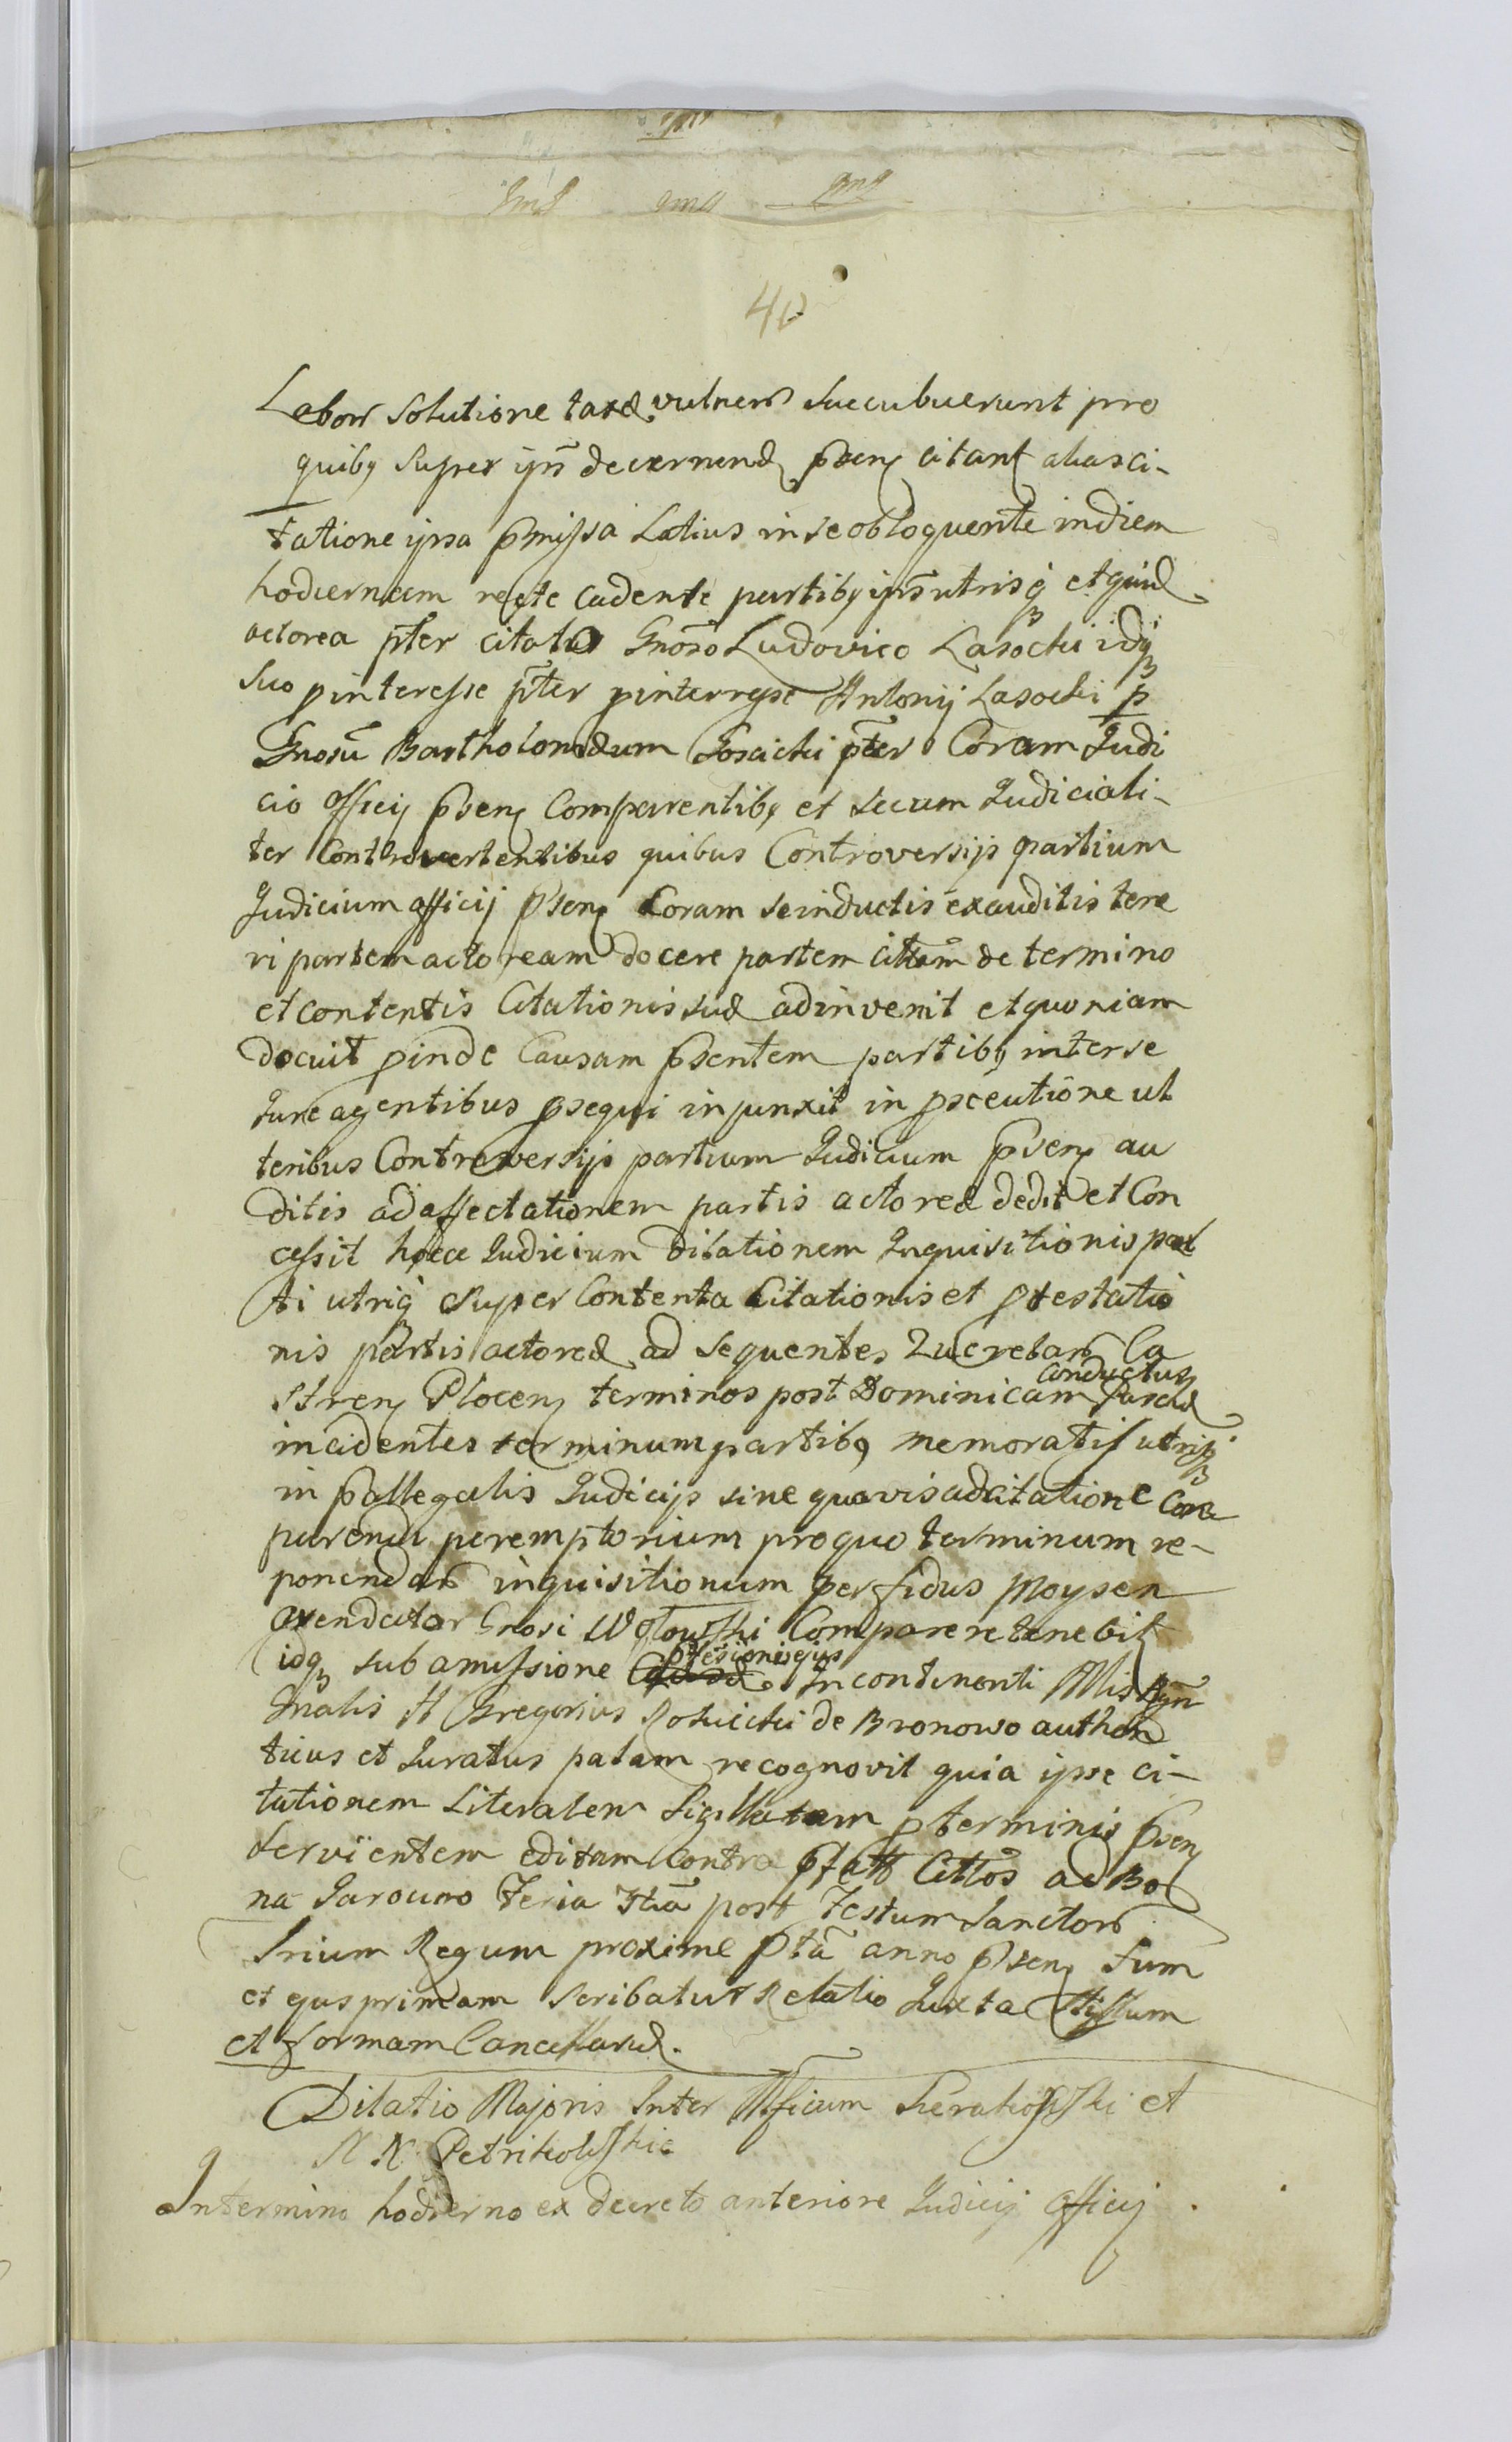 40
Lebors solutione taxæ vulneris succubuerunt pro
quibꝫ super ipīs decernendꝫ pꝰsenꝫ citantꝫ alias ci-
tatione ipsa pꝰmissa Latius in se obloquente in diem
hodiernam recte cadente partibꝫ ipīs utrisqꝫ et quid
actorea pter citatos Gnoso Ludovico Lasocki idqꝫ
suo pinteresse pter pinteresse Antonij Lasocki p
Gnosū Bartholomæum Gosicki pter Coram Judi
cio officij pꝰsenꝫ Comparentibꝫ et secum Judiciali-
ter Controvertentibus quibus Controversijs partium
Judicium officij pꝰsenꝫ Coram se inductis exauditis tene
ri partem actoream docere partem cittam de termino
et contentis Citationis suæ adinvenit et quoniam
docuit pinde Causam pꝰsentem partibꝫ inter se
Jure agentibus psequi injunxit in psecutione ul
teribus Controversijs partium Judicium pꝰsenꝫ au
ditis ad affectationem partis actoreæ dedit et Con
cessit hocce Judicium dilationem Inquisitionis par
ti utriqꝫ super Contenta Citationis et ptestatio
nis partis actoreæ ad sequentes Ca
Conductus
strenꝫ Plocenꝫ terminos post Dominicam Paschæ
incidentes terminum partibꝫ memoratis utrisqꝫ
in pallegatis Judicijs sine quavis adcitatione Com
parendi peremptorium pro quo terminum re-
ponendar inquisitionum perfidus Moysen
arendator Gnosi Wołowski Comparere tenebitꝫ
ptesionis ejus
idqꝫ sub amissione Causæ. In continenti Mis Rgn
Gnalis H Gregorius Rokicki de Bronowo authen
ticus et Juratus palam recognovit quia ipse ci-
tationem Literalem Sigillatam pterminis pꝰsenꝫ
servientem editam Contra pfatt Cittos ad Bo
na Jaroczno Feria Itia post Festum Sanctor
Trium Regum proxime ptā anno pꝰsenꝫ Sum
et qusprimam scribatur Relatio Juxta Stillum
et formam Cancellariæ.
Dilatio Majoris Inter Mficum Sierakowski et
N N Petrikolskie
In termino hodierno ex decreto anteriore Judicij officij